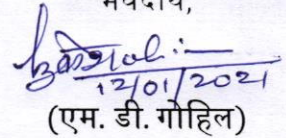 भवदीय,
12/01/2021
(एम. डी. गोहिल)